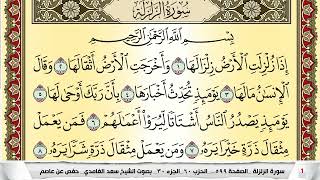 سورة الزلزلة
بِسْمِ ٱللَّهِ ٱلرَّحْمَٰنِ ٱلرَّحِيمِ
إِذَا زُلْزِلَتِ ٱلْأَرْضُ زِلْزَالَهَا ١ وَأَخْرَجَتِ ٱلْأَرْضُ أَثْقَالَهَا ٢ وَقَالَ
ٱلْإِنسَٰنُ مَا لَهَا ٣ يَوْمَئِذٍ تُحَدِّثُ أَخْبَارَهَا ٤ بِأَنَّ رَبَّكَ أَوْحَىٰ لَهَا ٥
يَوْمَئِذٍ يَصْدُرُ ٱلنَّاسُ أَشْتَاتًا لِّيُرَوْا۟ أَعْمَٰلَهُمْ ٦ فَمَن يَعْمَلْ
مِثْقَالَ ذَرَّةٍ خَيْرًا يَرَهُۥ ٧ وَمَن يَعْمَلْ مِثْقَالَ ذَرَّةٍ شَرًّا يَرَهُۥ ٨
1 سورة الزلزلة - صفحة ٥٩٩ - الحزب ٦٠ - الجزء ٣٠ - بصوت الشيخ سعد الغامدي - حفص عن عاصم